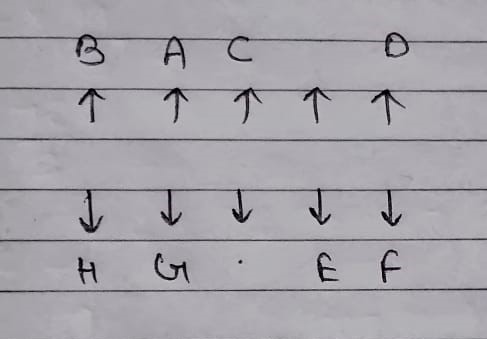 B A C D
↑ ↑ ↑ ↑ ↑
↓ ↓ ↓ ↓ ↓
H G . E F